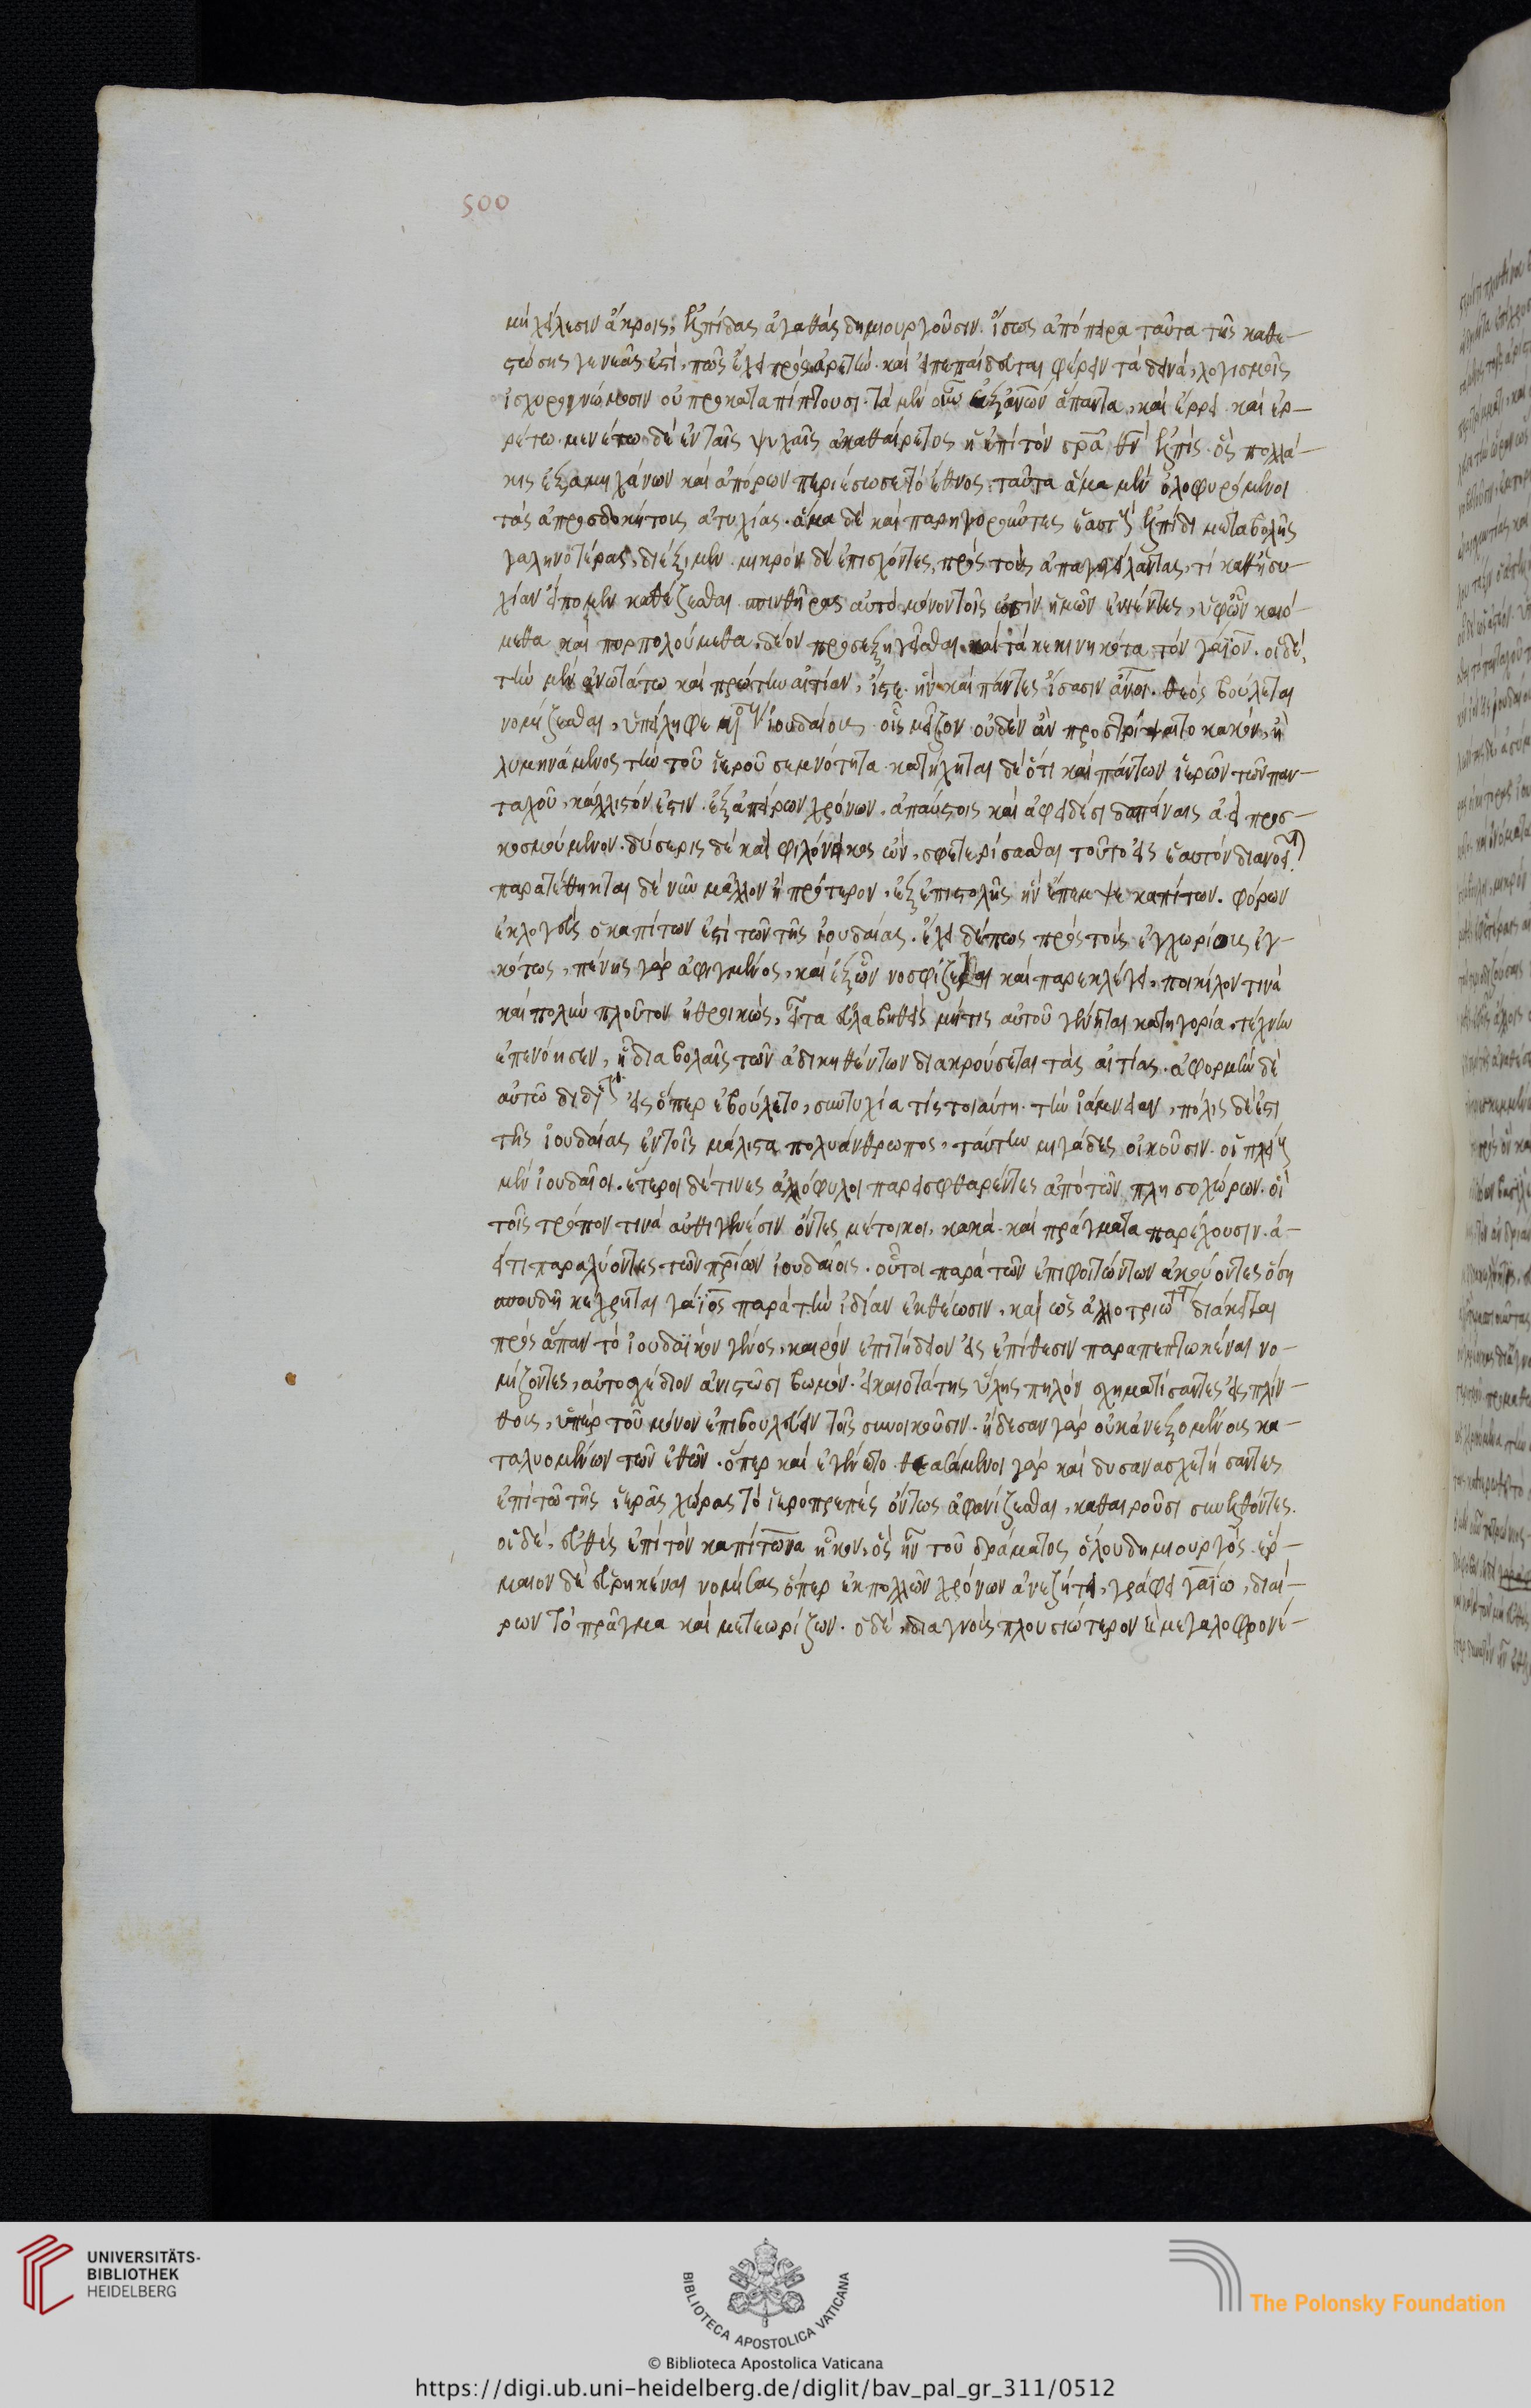 500
μὴ χείλεσιν ἄκροις ἐλπίδας ἀγαθὰς δημιουργοῦσιν. ἴσως ἀπόπειρα ταῦτα τῆς καθε-
στώσης γενεᾶς ἐστὶ, πῶς ἔχει πρὸς ἀρετὴν. καὶ εἰ πεπαίδευται φέρειν τὰ δεινὰ, λογισμοῖς
ἰσχυρογνώμοσιν οὐ προκαταπίπτουσι. τὰ μὲν οὖν ἐξ ἀνων ἅπαντα, καὶ ἔρρει καὶ ἐρ-
ρέτω. μενέτω δὲ ἐν ταῖς ψυχαῖς ἀκαθαίρετος ἡ ἐπὶ τὸν σρα θν ἐλπὶς. ὃς πολλά-
κις ἐξ ἀμηχάνων καὶ ἀπόρων περιέσωσε τὸ ἔθνος. ταῦτα ἅμα μὲν ὀλοφυρόμενοι
τὰς ἀπροσδοκήτους ἀτυχίας. ἅμα δὲ καὶ παρηγοροῦντες ἑαυτοὺς ἐλπίδι μεταβολῆς
γαληνοτέρας, διέξιμεν. μικρὸν δὲ ἐπισχόντες, πρὸς τοὺς ἀπαγγείλαντας, τί καθ' ἡσυ-
χίαν εἴπομεν καθέζεσθαι σπινθῆρας αὐτὸ μόνον τοῖς ὠσὶν ἡμῶν ἐνιέντες, ὑφ' ὧν καιό-
μεθα καὶ πυρπολούμεθα, δέον προσεξηγεῖσθαι καὶ τὰ κεκινηκότα τὸν γάϊον. οἱ δὲ,
τὴν μὲν ἀνωτάτω καὶ πρώτην αἰτίαν, ἴστε. ἣν καὶ πάντες ἴσασιν ἄνοι. θεὸς βούλεται
νομίζεσθαι, ὑπείληφε δὲ ἰουδαίους οἷς μεῖζον οὐδὲν ἂν προστρίψαιτο κακὸν, ἢ
λυμηνάμενος τὴν τοῦ ἱεροῦ σεμνότητα. κατήχηται δὲ ὅτι καὶ πάντων ἱερῶν τῶν παν-
ταχοῦ, κάλλιστόν ἐστιν. ἐξ ἀπείρων χρόνων. ἀπαύστοις καὶ ἀφειδέσι δαπάναις ἀεὶ προσ-
κοσμούμενον. δύσερις δὲ καὶ φιλόνεικος ὢν, σφετερίσασθαι τοῦτο εἰς ἑαυτὸν διανοεῖται
παρατέθηκται δὲ νῦν μᾶλλον ἢ πρότερον, ἐξ ἐπιστολῆς ἣν ἔπεμψε καπίτων. φόρων
ἐκλογεὺς ὁ καπίτων ἐστὶ τῶν τῆς ἰουδαίας. ἔχει δέ πως πρὸς τοὺς ἐγχωρίους ἐγ-
κότως, πένης γὰρ ἀφιγμένος, καὶ ἐξ ὧν νοσφίζεται καὶ παρεκλέγει, ποικίλον τινὰ
καὶ πολὺν πλοῦτον ἠθροικὼς, εἶτα εὐλαβηθεὶς μή τις αὐτοῦ γένηται κατηγορία, τέχνην
ἐπενόησεν, ᾗ διαβολαῖς τῶν ἀδικηθέντων διακρούσεται τὰς αἰτίας. ἀφορμὴν δὲ
αὐτῷ εἰς ὅπερ ἐβούλετο, συντυχία τὶς τοιαύτη. τὴν ἰάμνειαν, πόλις δὲ ἐστι
τῆς ἰουδαίας ἐν τοῖς μάλιστα πολυάνθρωπος, ταύτην μιγάδες οἰκοῦσιν. οἱ πλείους
μὲν ἰουδαῖοι. ἕτεροι δέ τινες ἀλλόφυλοι παρεισφθαρέντες ἀπὸ τῶν πλησιοχώρων. οἳ
τοῖς τρόπον τινὰ αὐθιγενέσιν ὄντες μέτοικοι, κακὰ καὶ πράγματα παρέχουσιν. ἀ-
εί τι παραλύοντες τῶν πρίων ἰουδαίοις. οὗτοι παρὰ τῶν ἐπιφοιτώντων ἀκούοντες ὅση
σπουδῇ κέχρηται γάϊος παρὰ τὴν ἰδίαν ἐκθέωσιν, καὶ ὡς ἀλλοτριωτ διάκειται
πρὸς ἅπαν τὸ ἰουδαϊκὸν γένος, καιρὸν ἐπιτήδειον εἰς ἐπίθεσιν παραπεπτωκέναι νο-
μίζοντες, αὐτοσχέδιον ἀνιστῶσι βωμὸν. εἰκαιοτάτης ὕλης πηλὸν σχηματίσαντες εἰς πλίν-
θους, ὑπὲρ τοῦ μόνον ἐπιβουλεύειν τοῖς συνοικοῦσιν. ᾔδεσαν γὰρ οὐκ ἀνεξομένους κα-
ταλυομένων τῶν ἐθῶν. ὅπερ καὶ ἐγένετο. θεασάμενοι γὰρ καὶ δυσανασχετήσαντες
ἐπὶ τῷ τῆς ἱερᾶς χώρας τὸ ἱεροπρεπὲς ὄντως ἀφανίζεσθαι, καθαιροῦσι συνελθόντες.
οἱ δὲ, εὐθὺς ἐπὶ τὸν καπίτωνα ἧκον, ὃς ἦν τοῦ δράματος ὅλου δημιουργὸς. ἕρ-
μαιον δὲ εὑρηκέναι νομίσας ὅπερ ἐκ πολλῶν χρόνων ἀνεζήτει, γράφει γαΐῳ, διαί-
ρων τὸ πρᾶγμα καὶ μετεωρίζων. ὁ δὲ, διαγνοὺς πλουσιώτερον μεγαλοφρονέ-
UNIVERSITÄTS-
BIBLIOTHEK
HEIDELBERG
BIBLIOTECA APOSTOLICA VATICANA
The Polonsky Foundation
© Biblioteca Apostolica Vaticana
https://digi.ub.uni-heidelberg.de/diglit/bav_pal_gr_311/0512